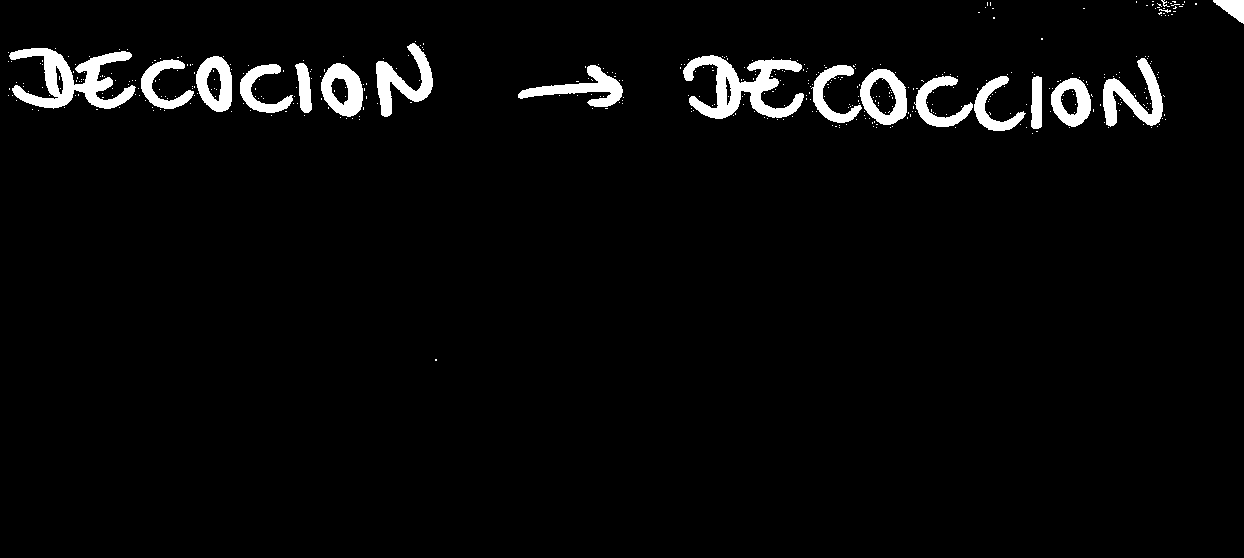 DECOCION → DECOCCION